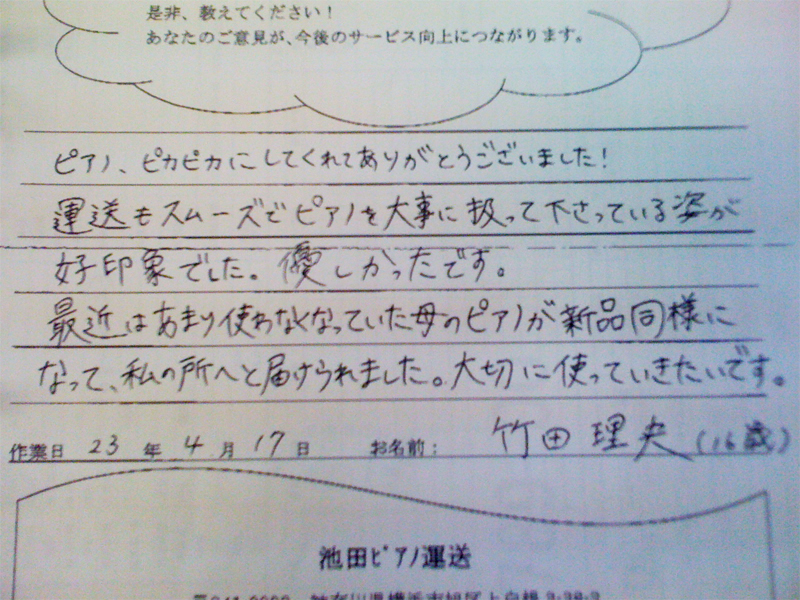 是非、教えてください!
あなたのご意見が、今後のサービス向上につながります。
ピアノ、ピカピカにしてくれてありがとうございました!
運送もスムーズでピアノを大事に扱って下さっている姿が
好印象でした。優しかったです。
最近はあまり使わなくなっていた母のピアノが新品同様に
なって、私の所へと届けられました。大切に使っていきたいです。
作業日 23 年 4 月 17 日 お名前: 竹田 理央 (16歳)
池田ピアノ運送
神奈川県横浜市旭区上白根